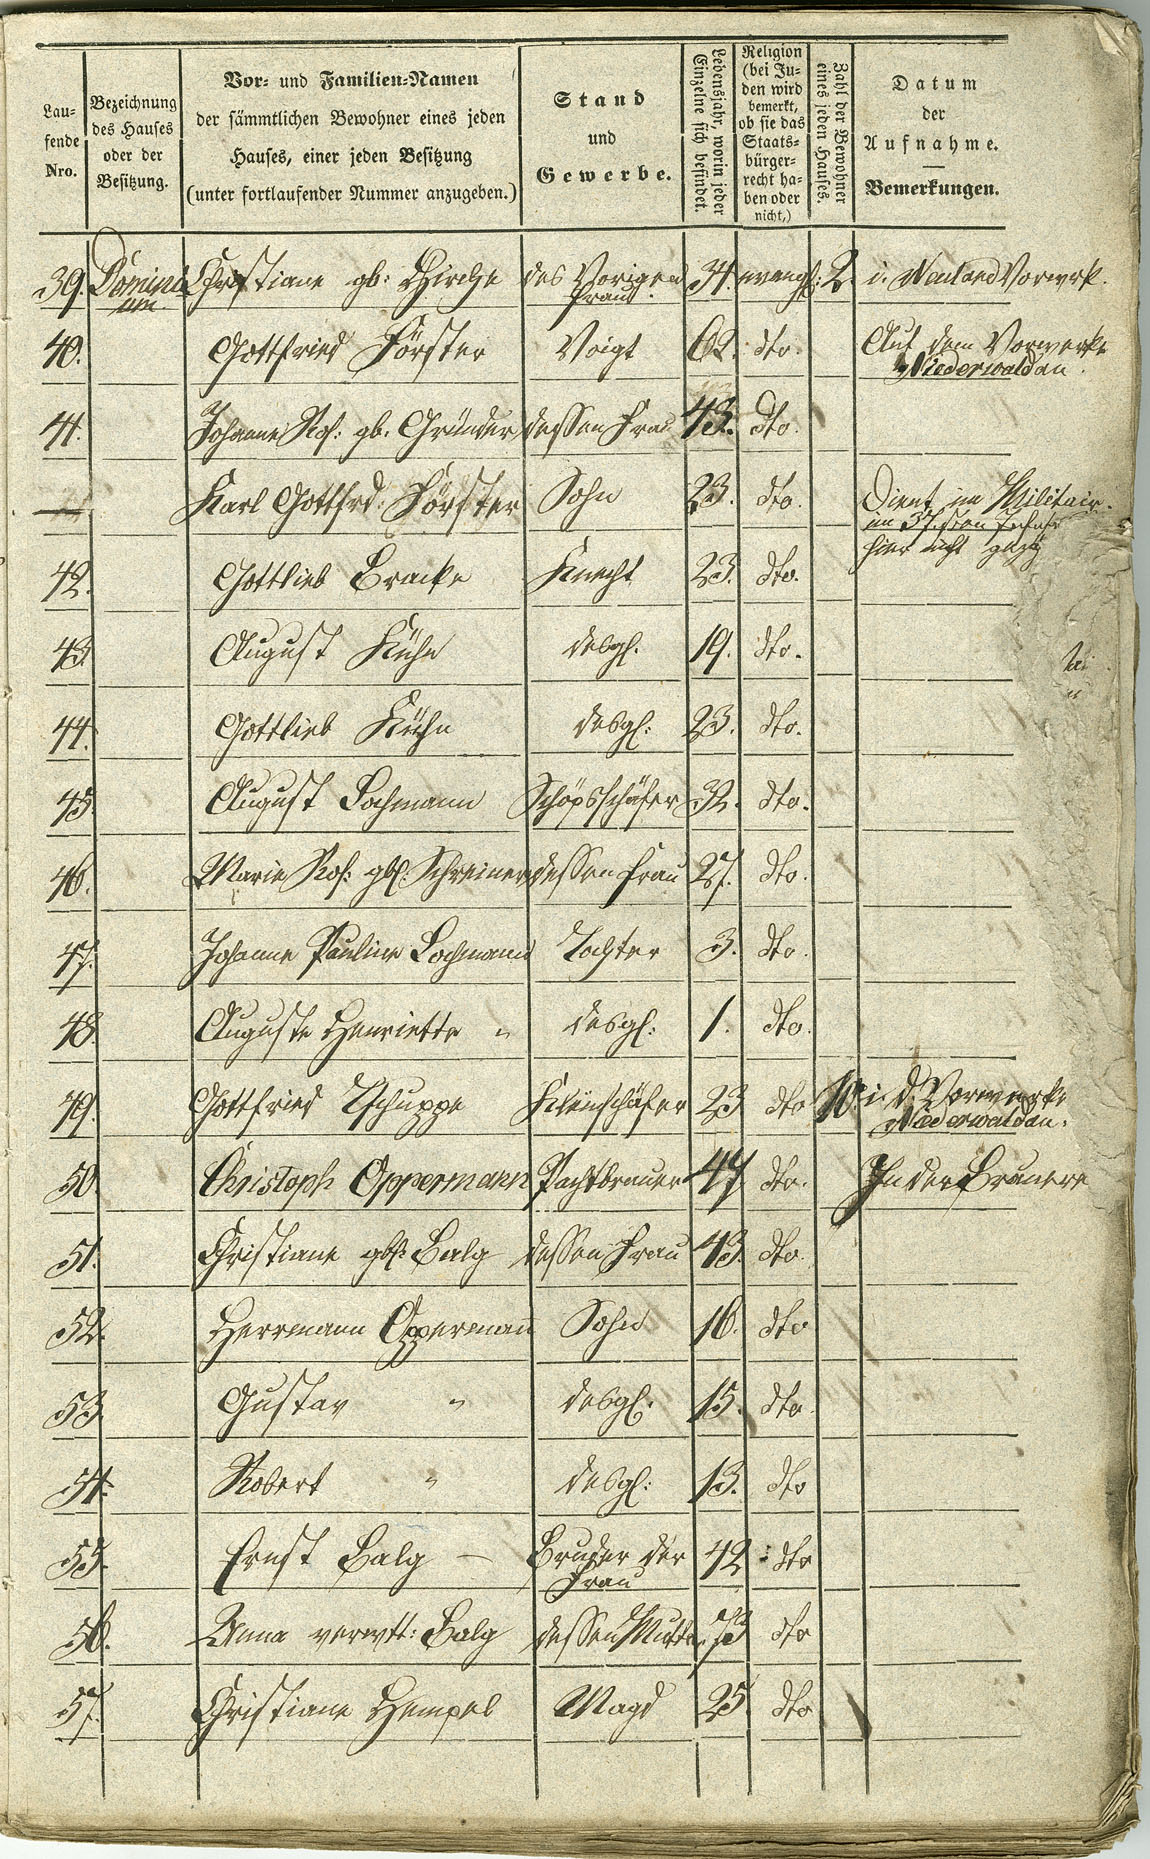 Lau-
fende
Nro.
Bezeichnung
des Hauses
oder der
Besitzung.
Vor- und Familien-Namen
der sämmtlichen Bewohner eines jeden
Hauses, einer jeden Besitzung
(unter fortlaufender Nummer anzugeben.)
Stand
und
Gewerbe.
Lebensjahr, worin jeder
Einzelne sich befindet.
Religion
(bei Ju-
den wird
bemerkt,
ob sie das
Staats-
bürger-
recht ha-
ben oder
nicht,)
Zahl der Bewohner
eines jeden Hauses.
Datum
der
Aufnahme.
Bemerkungen.
39. Domini Christiane gb: Hirche des Vorigen 34. evangl. 2 i. Vorwrk.
um. Frau.
40. Gottfried Förster Voigt 62. dto. Auf dem Vorwerke
Niederwaldau.
41. Johanne Ros: gb. Gründer dessen Frau 43. dto.
Karl Gottfrd. Förster Sohn 23. dto. Dient im Militair.
im 37sten
hier nicht
42. Gottlieb Bracke Knecht 23. dto.
43. August Kühn desgl. 19. dto.
44. Gottlieb Kühn desgl: 23. dto.
45. August Lochmann Schöpsschäfer 32. dto.
46. Marie Ros: gb: Schreiner dessen Frau 27. dto.
47. Johanne Pauline Lochmann Tochter 3. dto.
48. Auguste Henriette " desgl: 1. dto.
49. Gottfried Tschuppe Kleinschäfer 23 dto 10. i. d. Vorwerke
Niederwaldau.
50. Christoph Oppermann Pachtbrauer 47 dto. In der Brauere
51. Christiane gb: Balg dessen Frau 43. dto.
52. Herrmann Oppermann Sohn 16. dto
53. Gustav " desgl. 15. dto.
54. Robert " desgl: 13. dto
55. Ernst Balg — Bruder der 42 dto
Frau
56. Anna verwtt: Balg dessen Mutter 73 dto
57. Christiane Hempel Magd 25 dto